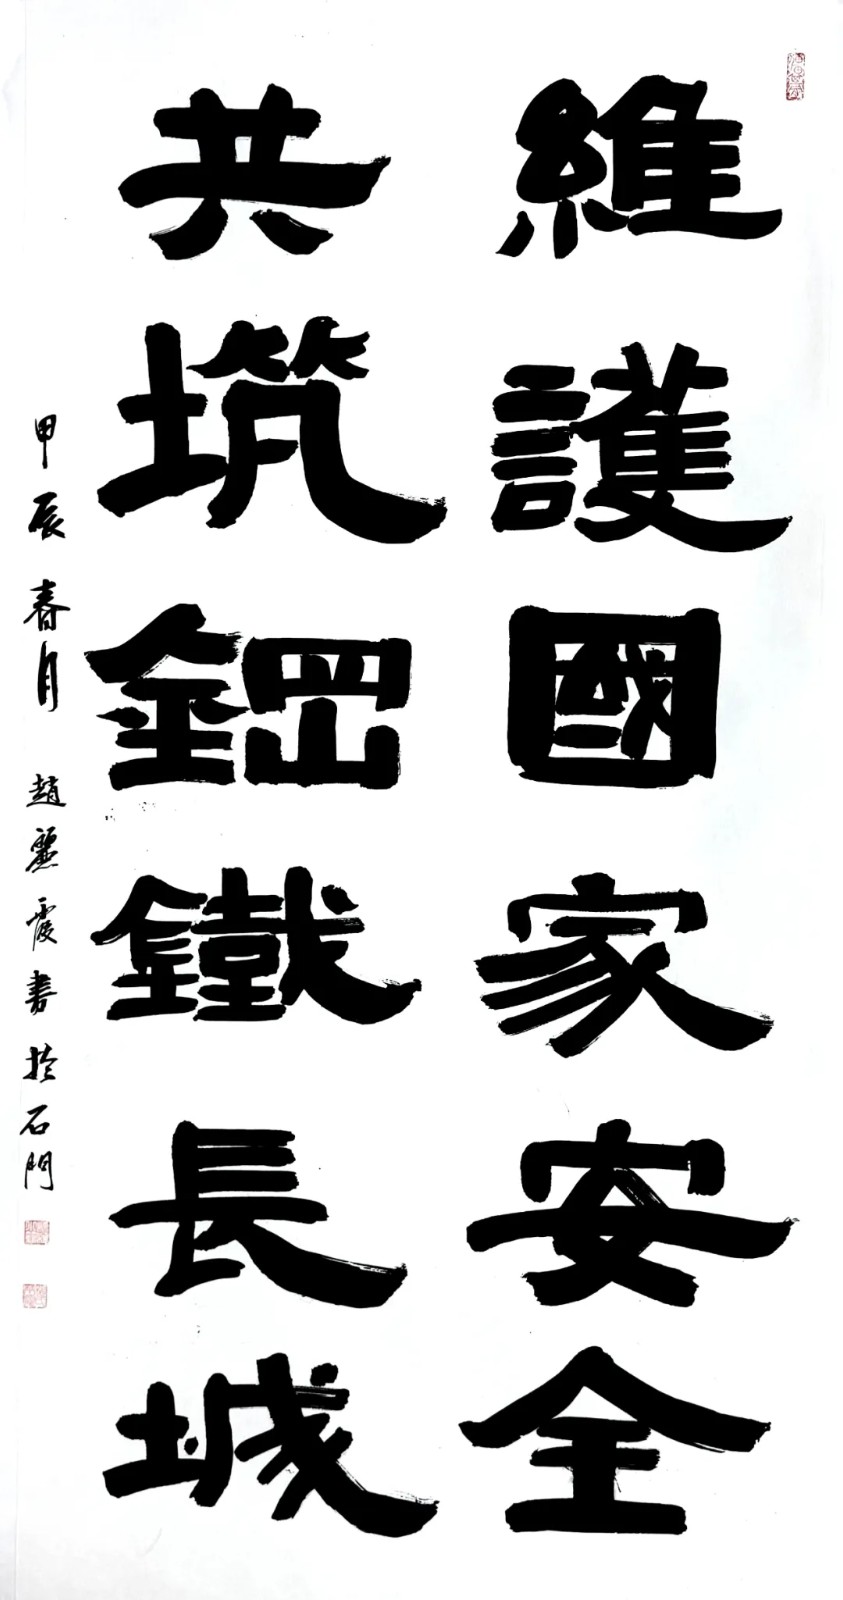 維護國家安全
共築鋼鐵長城
甲辰春月 趙麗霞書於石門